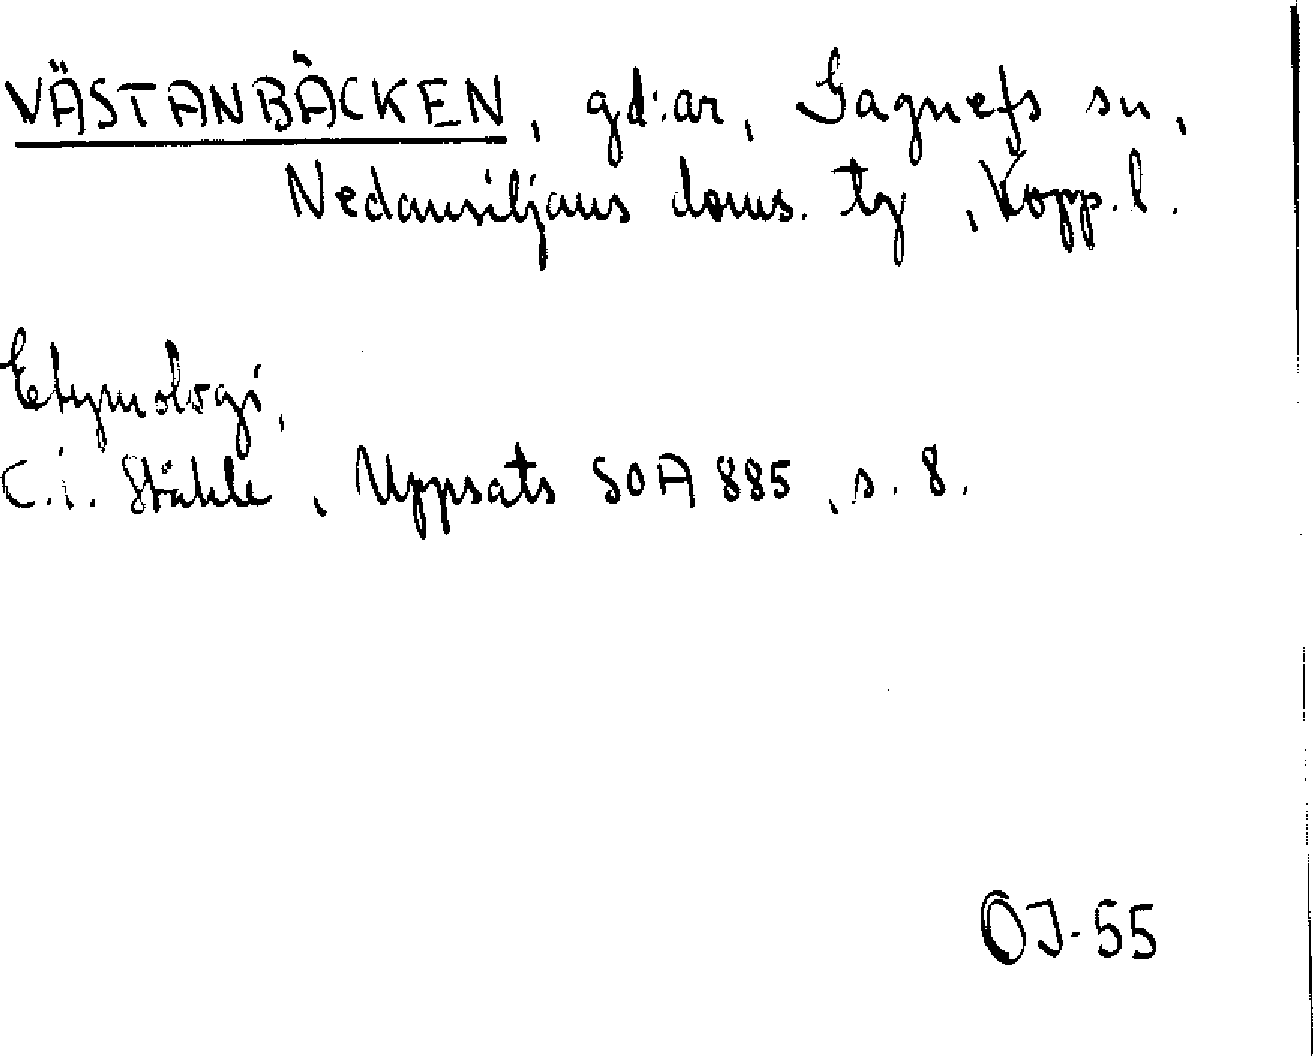 VÄSTANBÄCKEN, gd:ar, Gagnefs sn,
Nedansiljans doms. tg, Kopp.l.
Etymologi,
C.i. Ståhle, Uppsats SOA 885, s. 8.
OJ-55